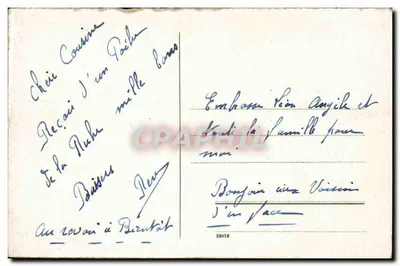 Chère Cousine
Reçoi d'un Poilu
de la Ruhr mille bons
Baisers René
au revoir à Bientôt
Embrasse Léon Angèle et
toute la famille pour
moi
Bonjour aux Voisin
d'en face
CPAPHIL